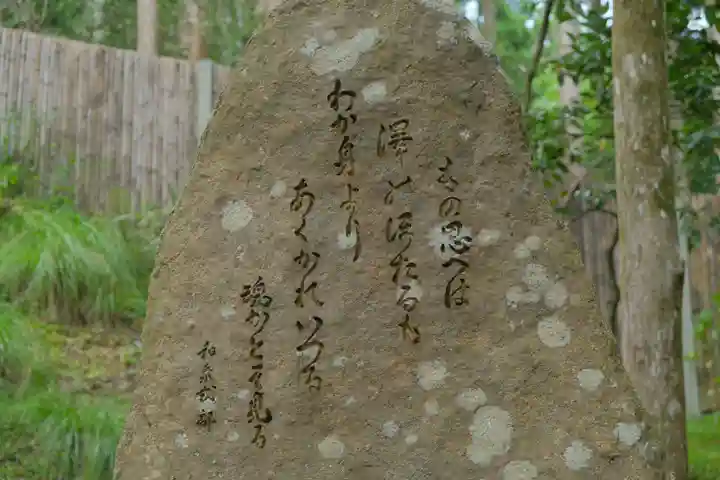 もの思へは
澤の蛍も
わか身より
あくかれいつる
魂かとそ見る
和泉式部